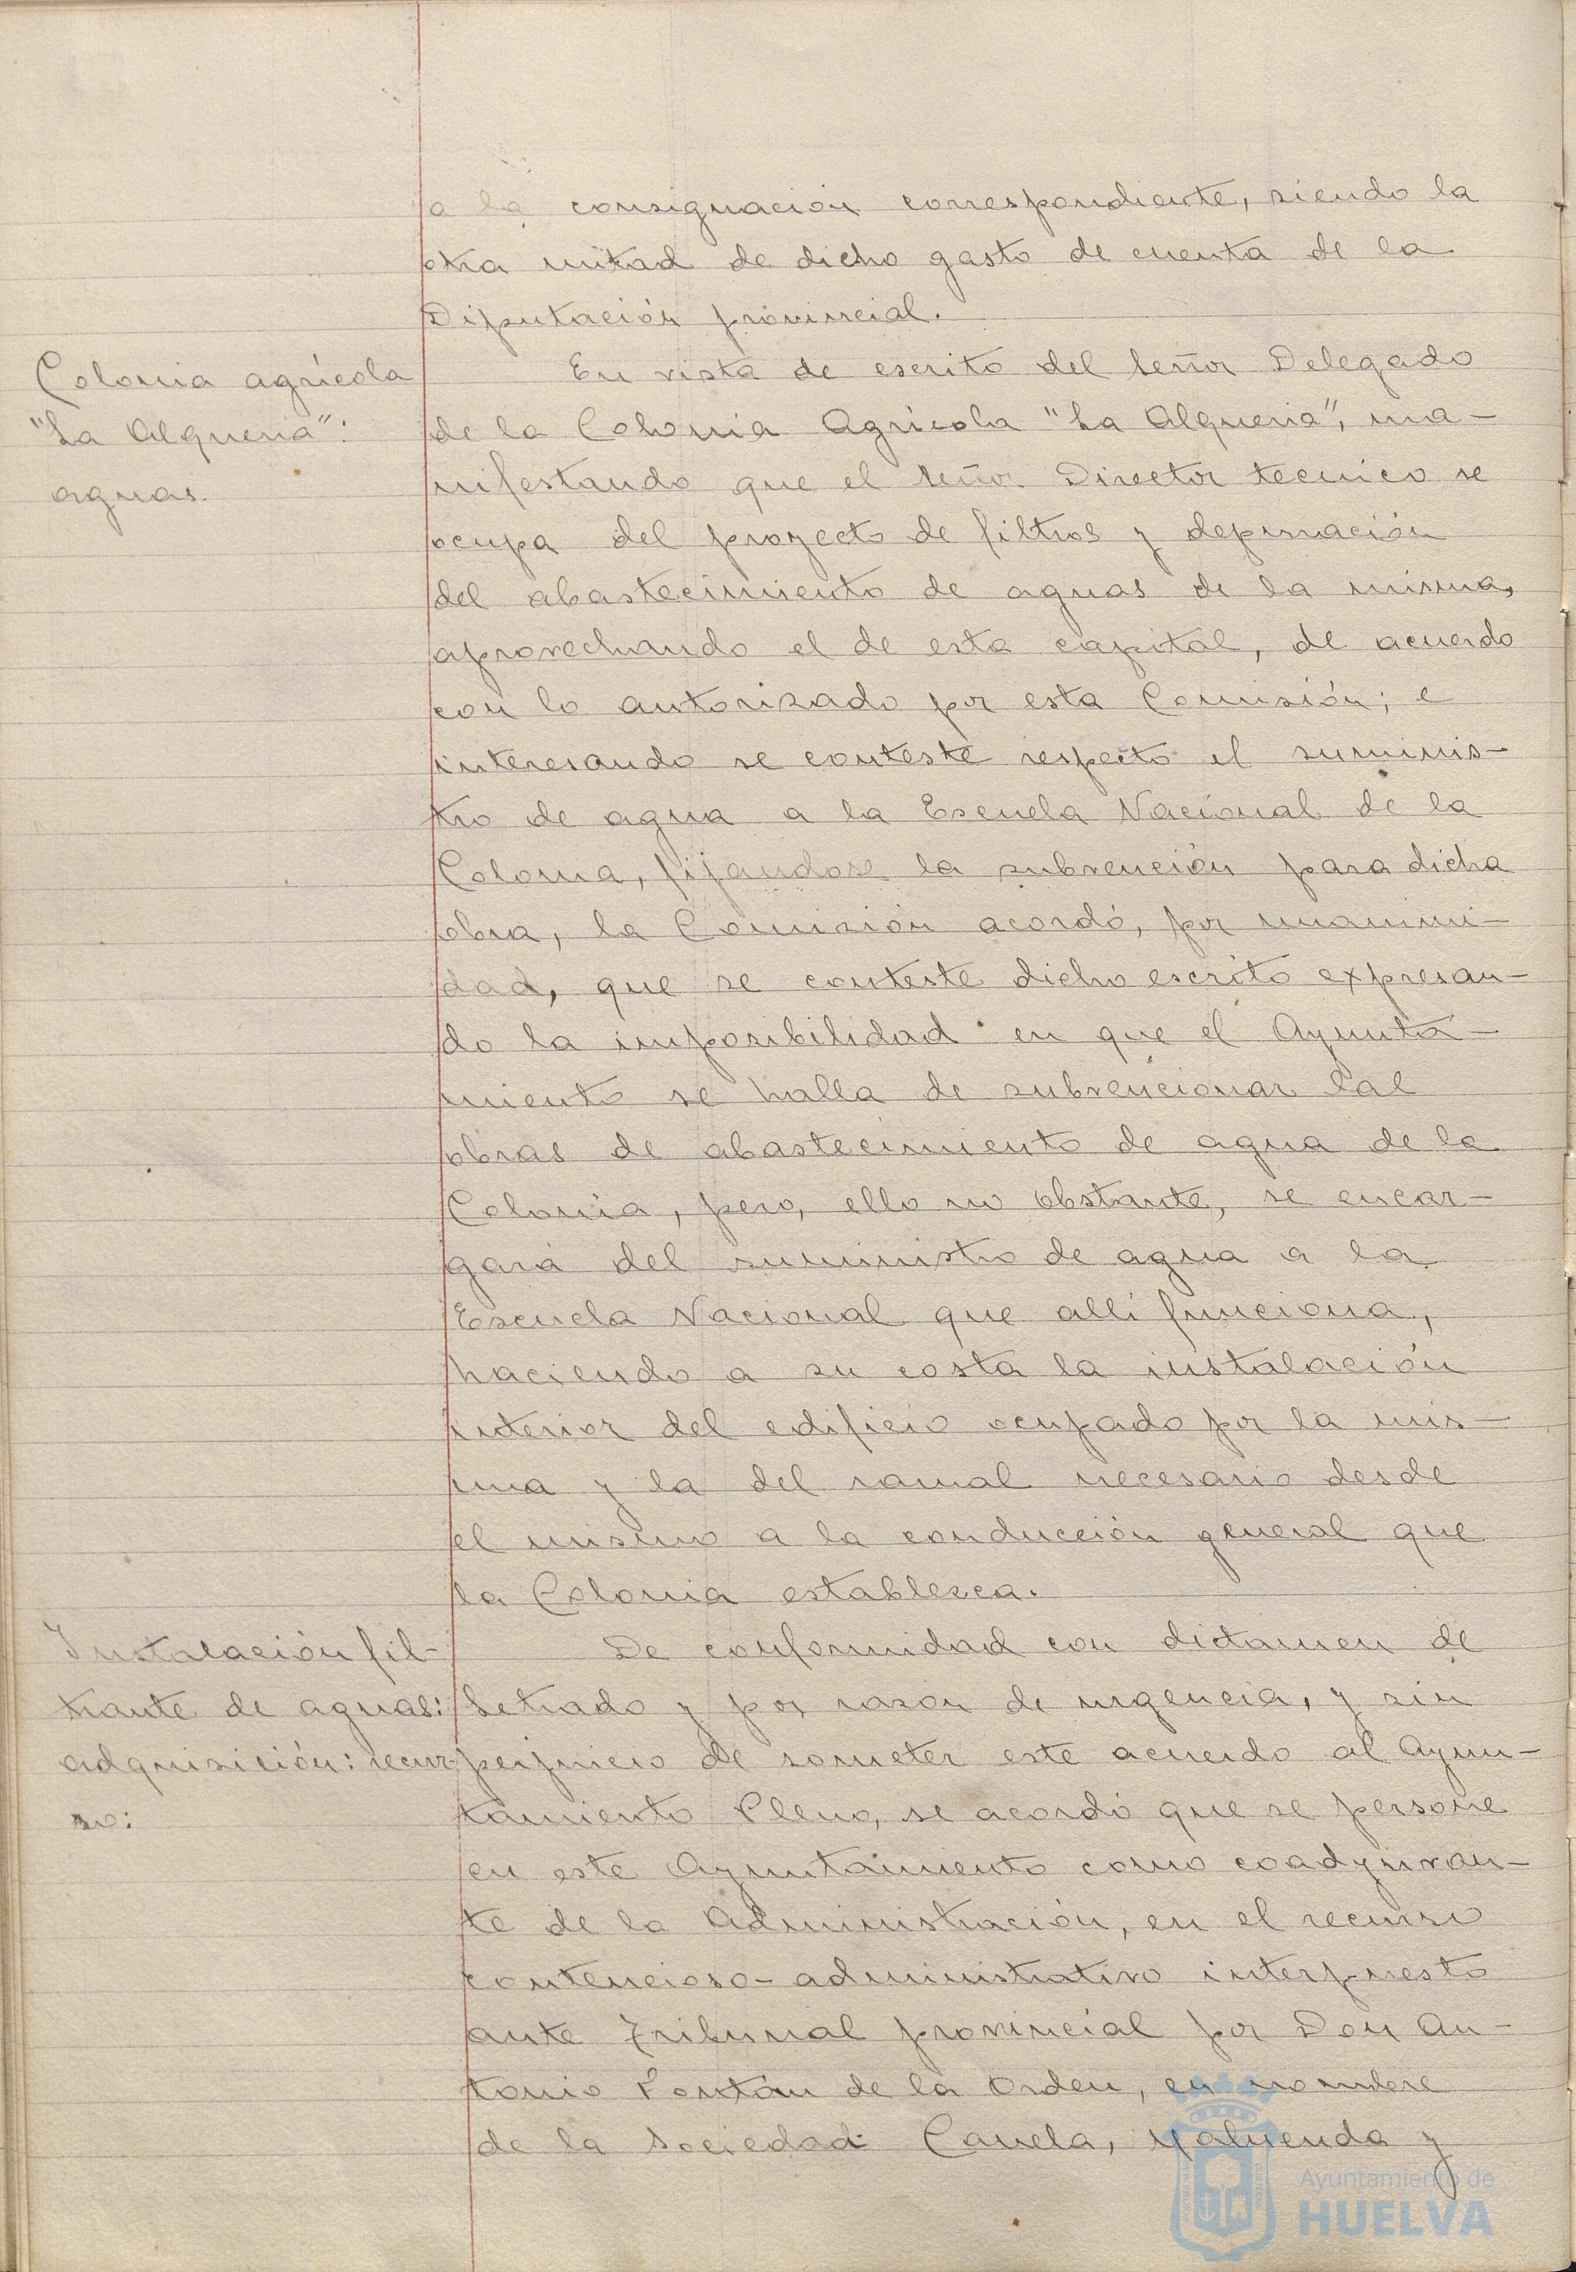 a la consignación correspondiente, siendo la
otra mitad de dicho gasto de cuenta de la
Diputación provincial.
Colonia agrícola
"La Alqueria":
aguas.
En vista de escrito del señor Delegado
de la Colonia Agrícola "La Alqueria", ma-
nifestando que el señor Director tecnico se
ocupa del proyecto de filtros y depuración
del abastecimiento de aguas de la misma,
aprovechando el de esta capital, de acuerdo
con lo autorizado por esta Comisión; e
interesando se conteste respecto el suminis-
tro de agua a la Escuela Nacional de la
Colonia, fijandose la subvención para dicha
obra, la Comisión acordó, por unanimi-
dad, que se conteste dicho escrito expresan-
do la imposibilidad en que el Ayunta-
miento se halla de subvencionar las
obras de abastecimiento de agua de la
Colonia, pero, ello no obstante, se encar-
gará del suministro de agua a la
Escuela Nacional que allí funciona,
haciendo a su costa la instalación
interior del edificio ocupado por la mis-
ma y la del ramal necesario desde
el mismo a la conducción general que
la Colonia establezca.
Instalación fil-
trante de aguas:
adquisición: recur-
so:
De conformidad con dictamen de
Letrado y por razón de urgencia, y sin
perjuicio de someter este acuerdo al Ayun-
tamiento Pleno, se acordó que se persone
en este Ayuntamiento como coadyuvan-
te de la Administración, en el recurso
contencioso-administrativo interpuesto
ante Tribunal provincial por Don An-
tonio Fontán de la Orden, en nombre
de la Sociedad Canela, Maluenda y
Ayuntamiento de
HUELVA